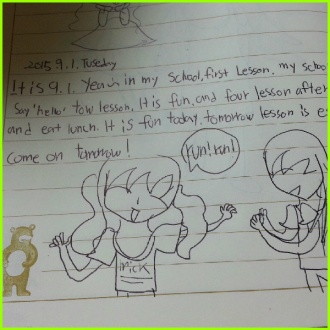 2015 9.1. Tuesday
It is 9.1. Yeah in my school, first lesson. my schoo
Say 'hello' tow lesson. It is fun, and four lesson after
and eat lunch. It is fun today. tomorrow lesson is e
come on tomorrow!
run! run!
NICK